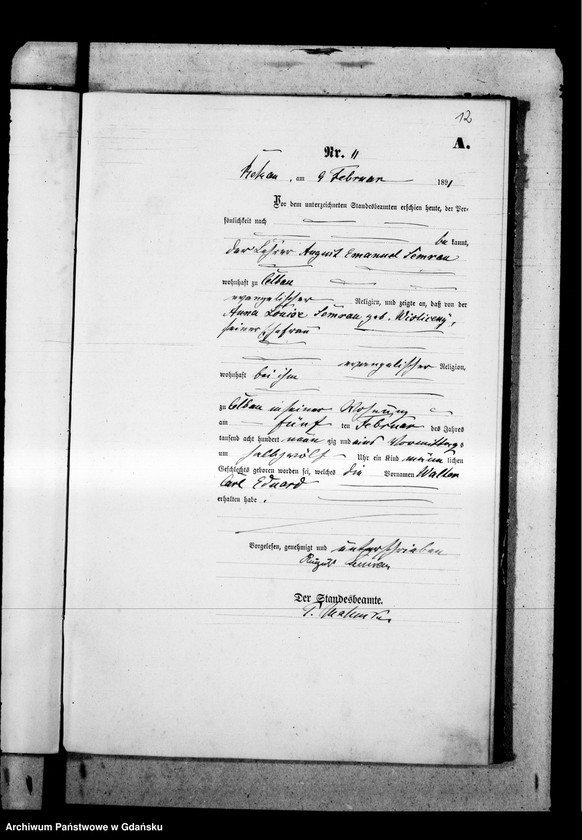 12
A.
Nr. 11
am 9 Februar 1891
Vor dem unterzeichneten Standesbeamten erschien heute, der Per-
sönlichkeit nach
be kannt,
der Lehrer August Emanuel Semrau
wohnhaft zu Cölbau
evangelischer Religion, und zeigte an, daß von der
Anna Louise Semrau geb.
seiner Ehefrau
evangelischer Religion,
wohnhaft bei ihm
zu Cölbau in seiner Wohnung
am fünf ten Februar des Jahres
tausend acht hundert neun zig und eins Vormittags
um halb zwölf Uhr ein Kind männ lichen
Geschlechts geboren worden sei, welches die Vornamen Walter
Carl Eduard
erhalten habe.
Vorgelesen, genehmigt und unterschrieben
August Semrau
Der Standesbeamte.
Archiwum Państwowe w Gdańsku